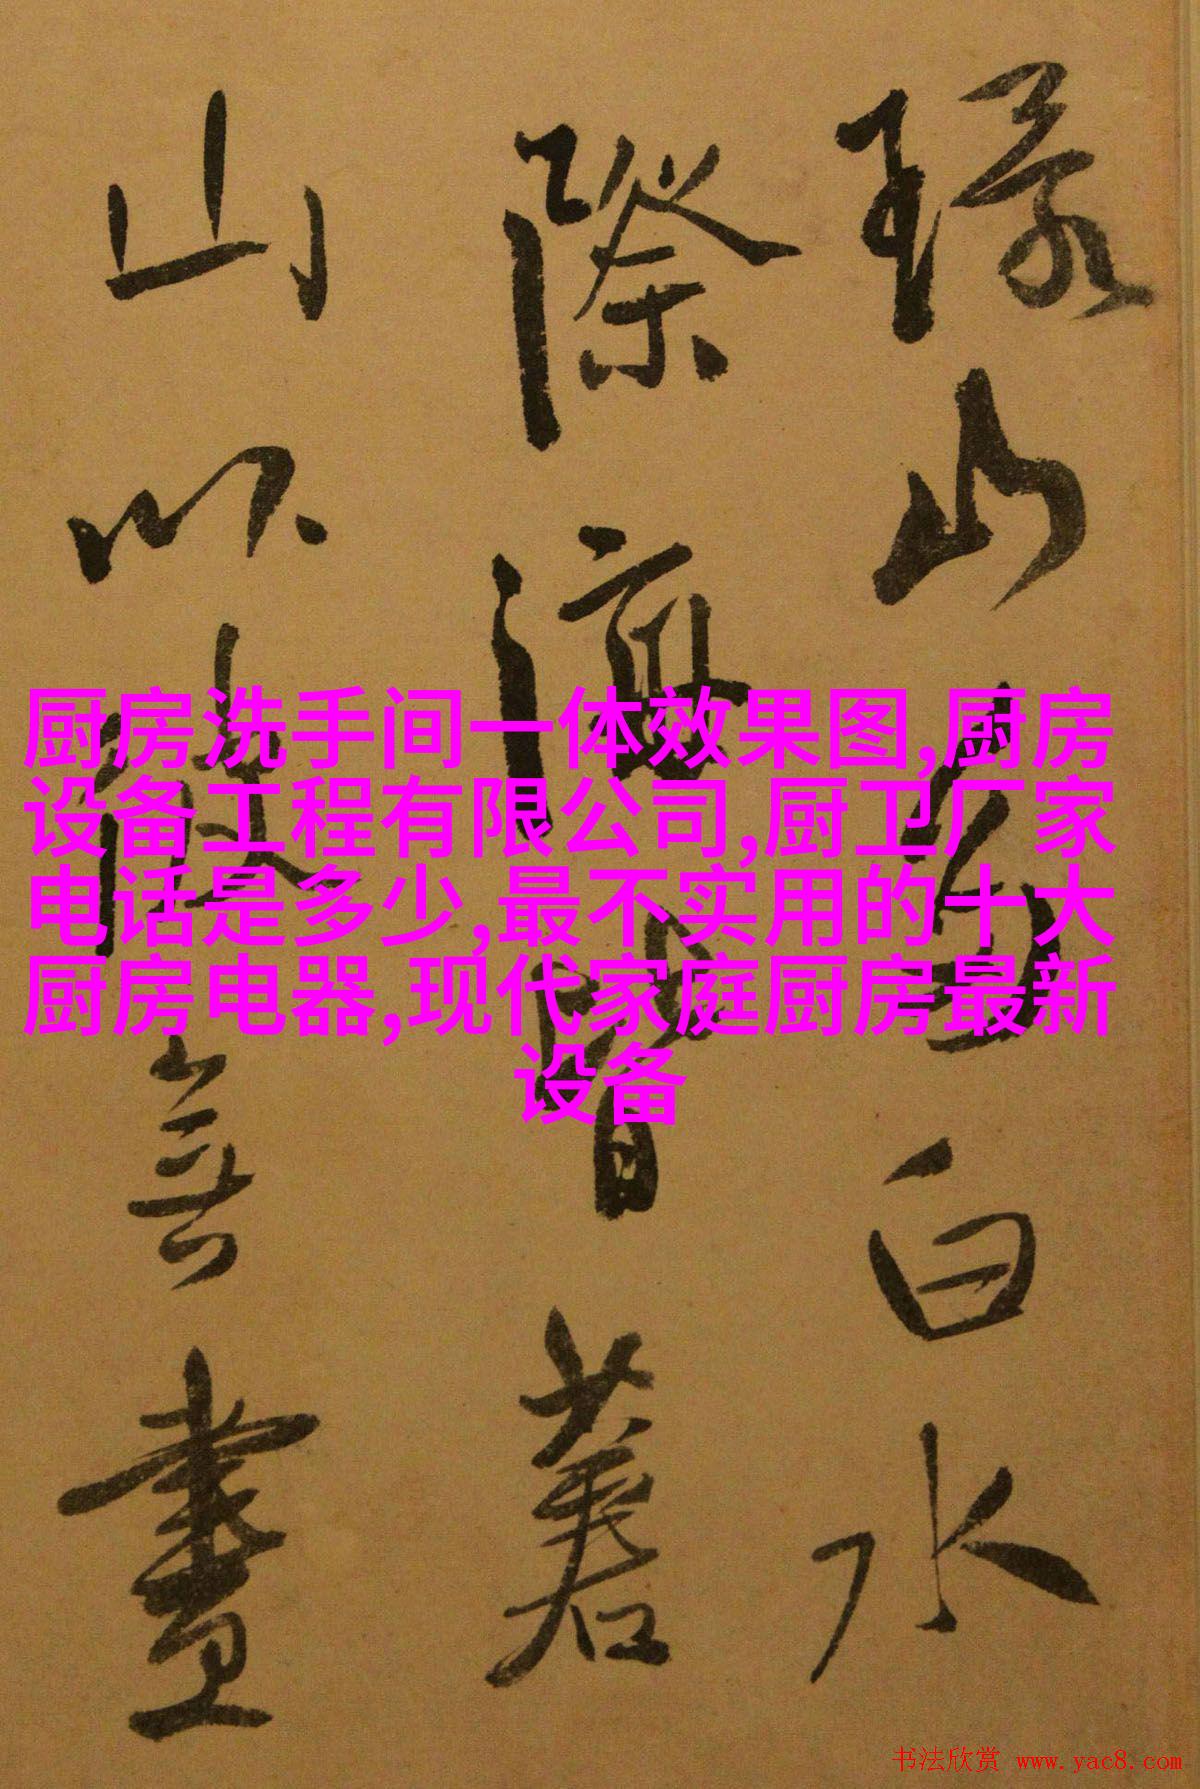 山白水
際海著
山以無
厨房洗手间一体效果图,厨房
设备工程有限公司,厨卫厂家
电话是多少,最不实用的十大
厨房电器,现代家庭厨房最新
设备
书法欣赏 www.yac8.com